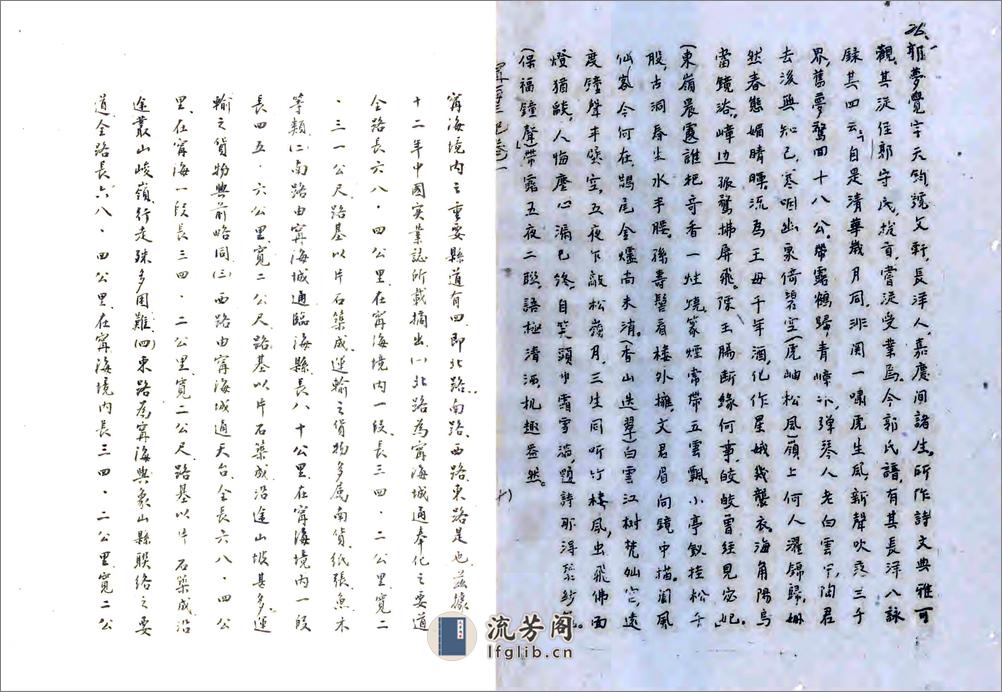 郭夢覺字天鈞號文軒、長洋人、嘉慶間諸生。所作詩文典雅可
觀、其從侄郭守氏、嘗從受業焉。今郭氏譜、有其長洋八詠
錄其四云、自是清華歲月同、非關一嘯虎生風、新聲吹落三千
界、舊夢驚回十八公、帶露鶴歸青嶂 、彈琴人老白雲 、陶君
去後無知己、寒咽出泉倚碧空(虎岫松風)嶺上何人濯錦歸、姍
然春態媚晴暉、流為王母千年酒、化作星娥幾襲衣、海角陽烏
當鏡浴、嶂边孤鶩拂屏飛、陳王腸断緣何事、皎皎曾经見宓妃、
(東嶺晨霞)誰把奇香一炷燒、篆煙常帶五雲飄、小亭釵挂松千
股、古洞春生水半腰、孫壽髻看樓外擁、文君眉向鏡中描、閬風
仙家今何在、鵲尾金爐尚未消。(香山迭翠)白雲江树梵仙宫、遠
度鐘聲半墜空、五夜乍敲松嶺月、三生同听竹樓風、虫飛佛面
燈猶燄、人悔塵心漏已終、自笑頭巾霜雪滿、題詩那得碧紗籠、
(保福鐘聲)帶霜五夜二聯、語極清洒、机趣盎然。
甯海 卷一 十)
甯海境内之重要縣道有四、即北路、南路、西路、東路是也、茲據
十二年中國实業誌所載摘出、(一)北路為甯海城通奉化之要道
全路長六八·四公里、在甯海境内一段長三四·二公里、寬二
·三一公尺、路基以片石築成、運輸之貨物多属南貨紙張魚木
等類、(二)南路由甯海城通臨海縣、長八十公里、在甯海境内一段
長四五·六公里、寬二公尺、路基以片石築成、沿途山坡甚多、運
輸之貨物與前略同、(三)西路由甯海城通天台、全長六八·四公
里、在甯海一段長三四·二公里、寬二公尺、路基以片石築成、沿
途叢山峻嶺、行走殊多困難、(四)東路為甯海與象山縣联络之要
道、全路長六八·四公里、在甯海境内長三四·二公里、寬二公
流芳阁
lfglib.cn